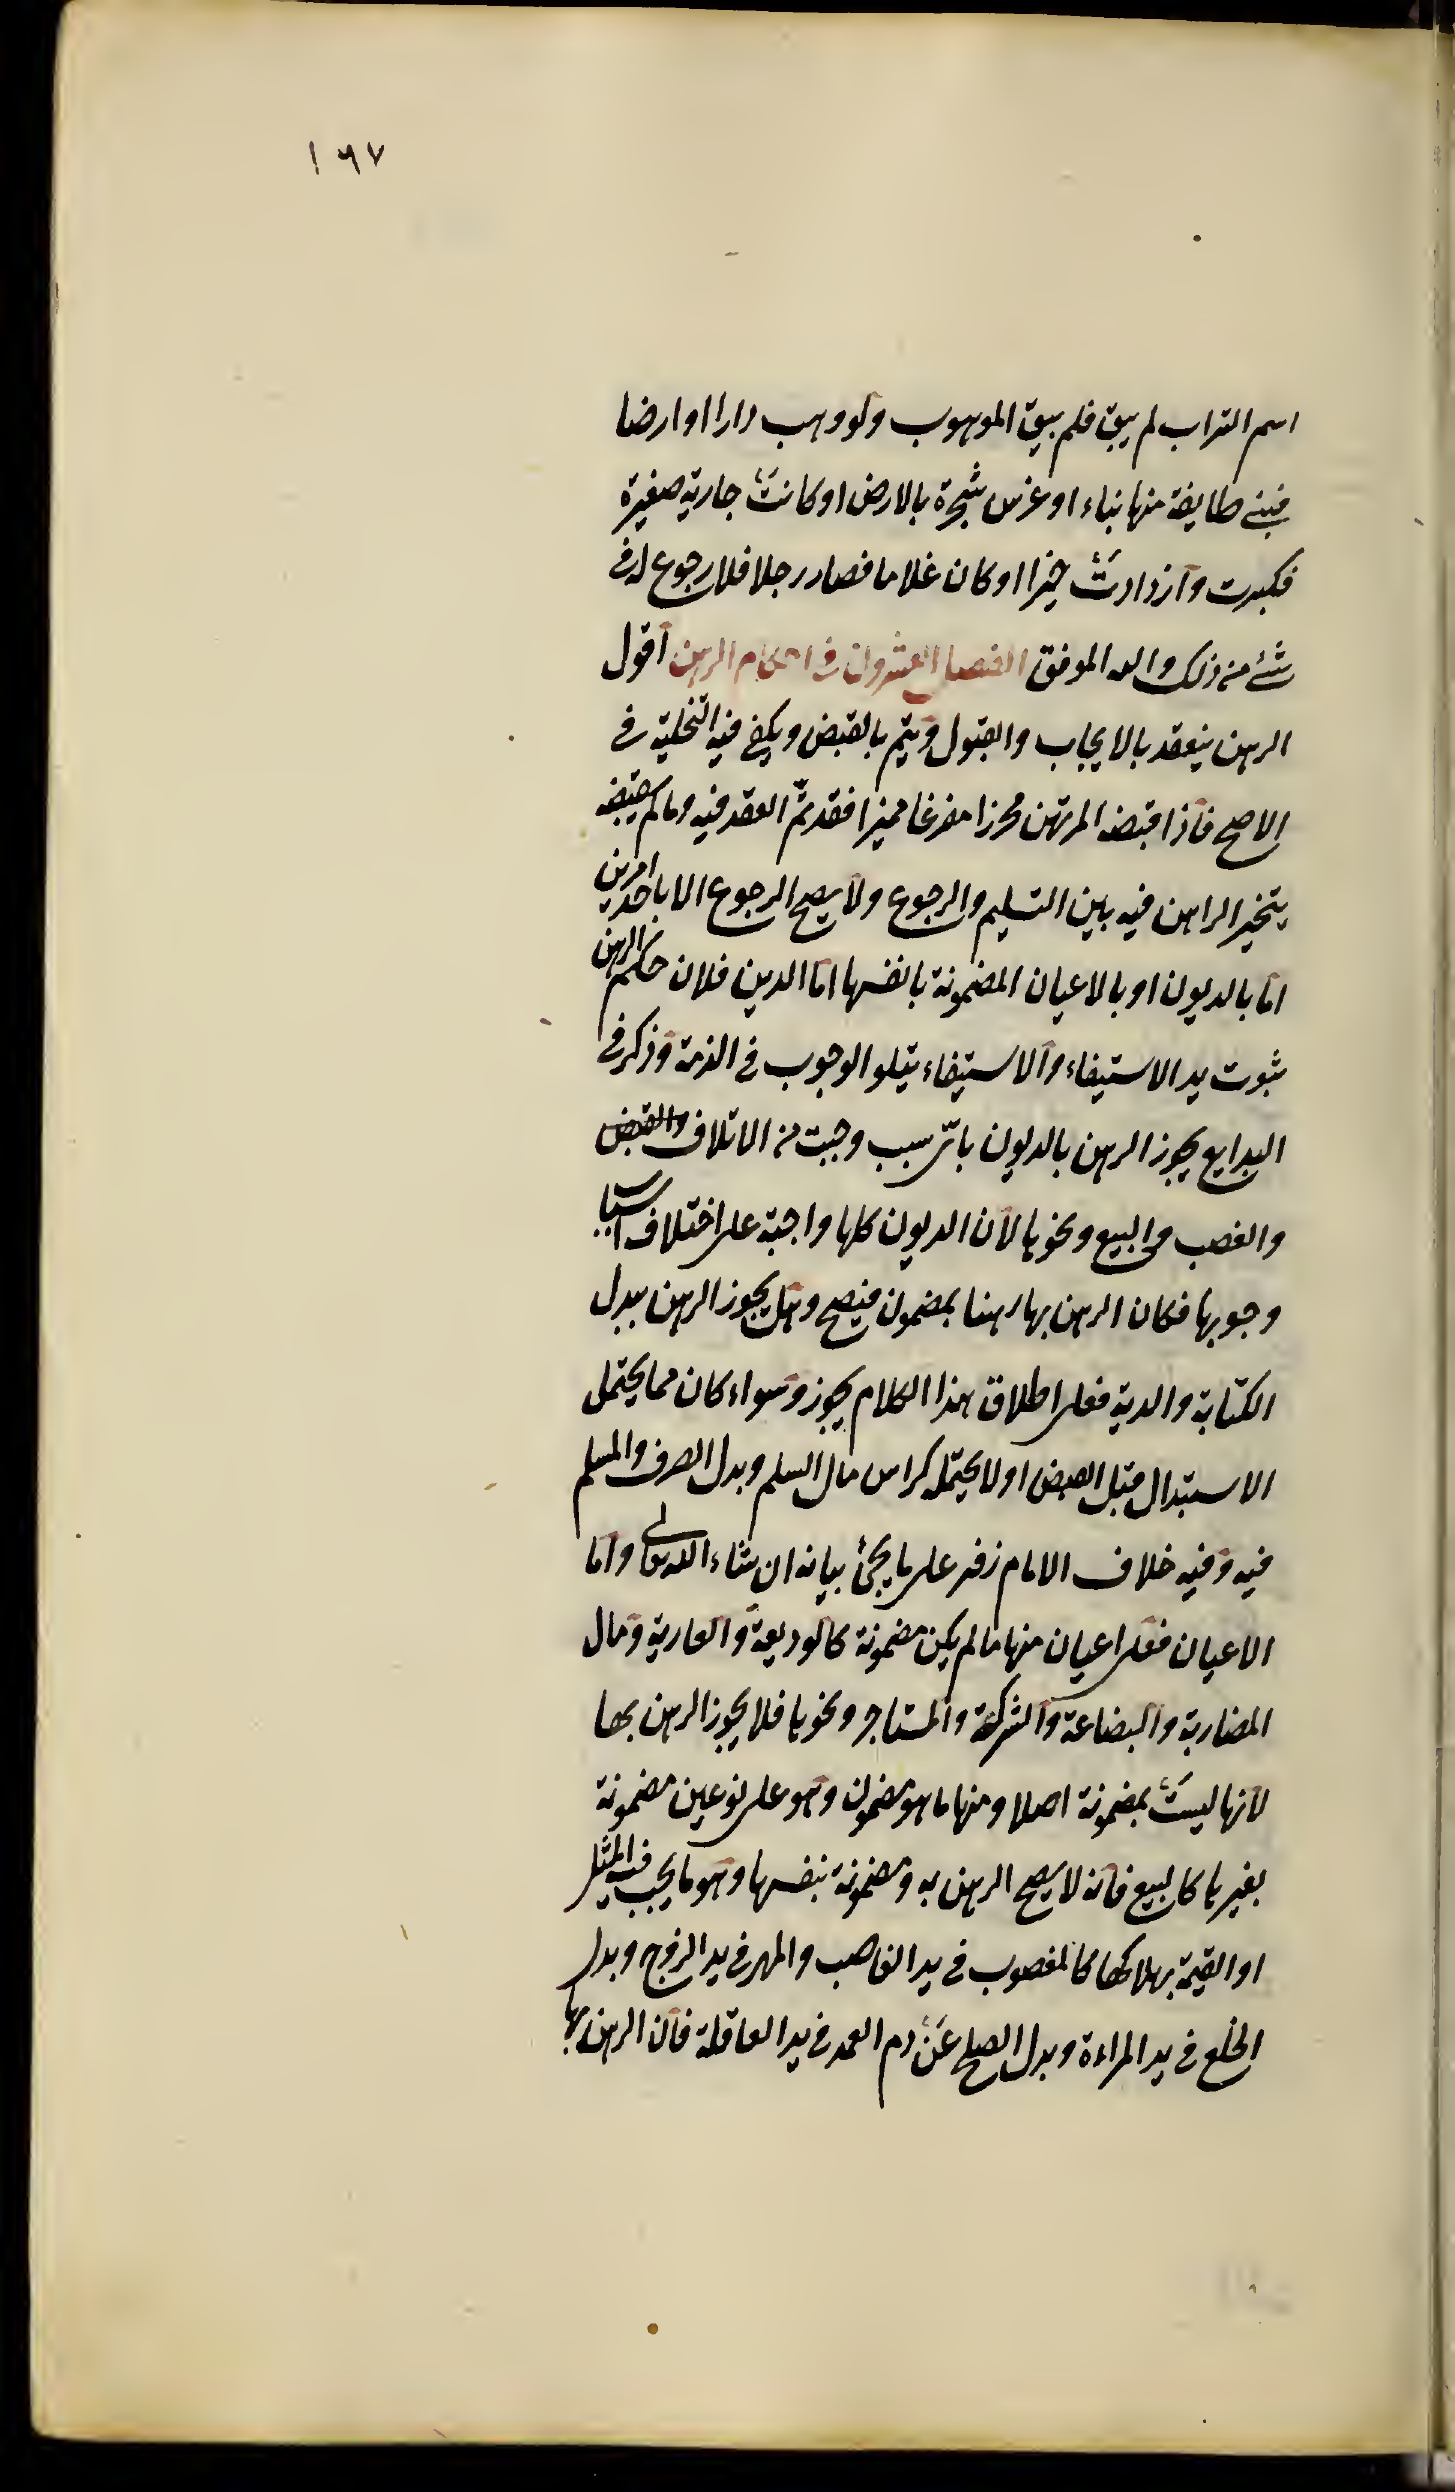 ١٦٧
اسم التراب لم يبق فلم يبق الموهوب ولو وهب دارا او ارضا
فبنى طايفة منها بناء او غرس شجرة بالارض او كانت جارية صغيرة
فكبرت وازدادت خيرا او كان غلاما فصار رجلا فلا رجوع له في
شئ من ذلك والله الموفق الفصل العشرون في احكام الرهن اقول
الرهن ينعقد بالايجاب والقبول ويتم بالقبض ويكفى فيه التخلية في
الاصح فاذا قبضه المرتهن محرزا مفرغا مميزا فقد تم العقد فيه وما لم يقبضه
يتخير الراهن فيه بين التسليم والرجوع ولا يصح الرجوع الا باحد امرين
اما بالديون او بالاعيان المضمونة بانفسها اما الدين فلان حكم الرهن
ثبوت يد الاستيفاء والاستيفاء يتلو الوجوب في الذمة وذكر في
البدايع يجوز الرهن بالديون باى سبب وجبت من الاتلاف والقبض
والغصب والبيع ونحوها لان الديون كلها واجبة على اختلاف اسباب
وجوبها فكان الرهن بها رهنا بمضمون فيصح وهل يجوز الرهن ببدل
الكتابة والدية فعلى اطلاق هذا الكلام يجوز وسواء كان مما يحتمل
الاستبدال قبل القبض او لا يحتمله كراس مال السلم وبدل الصرف والمسلم
فيه وفيه خلاف الامام زفر على ما يجئ بيانه ان شاء الله تعالى واما
الاعيان فعلى اعيان منها ما لم يكن مضمونة كالوديعة والعارية ومال
المضاربة والبضاعة والشركة والمستاجر ونحوها فلا يجوز الرهن بها
لانها ليست بمضمونة اصلا ومنها ما هو مضمون وهو على نوعين مضمونة
بغيرها كالبيع فانه لا يصح الرهن به ومضمونة بنفسها وهو ما يجب فيه المثل
او القيمة بهلاكها كالمغصوب في يد الغاصب والمهر في يد الزوج وبدل
الخلع في يد المراءة وبدل الصلح عن دم العمد في يد العاقلة فان الرهن بها